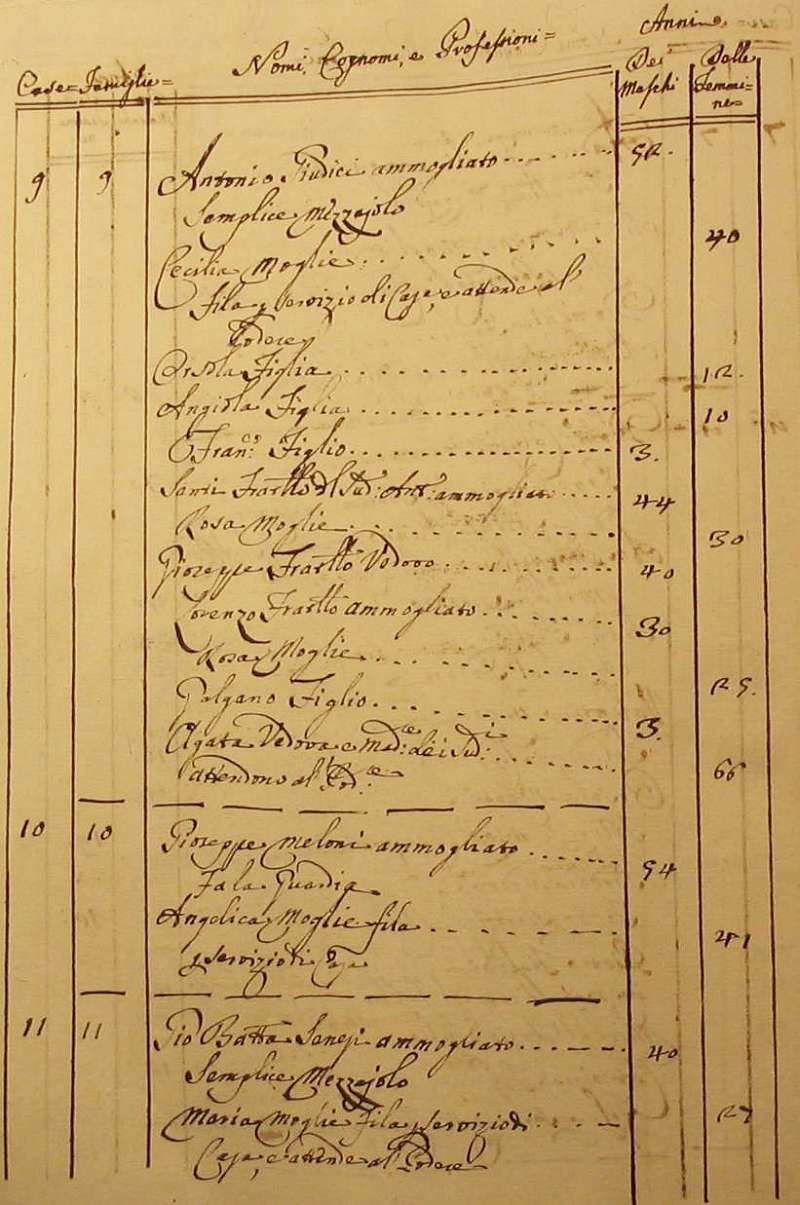 Anni
Case= Famiglie= Nomi, Cognomi, e Professioni= Dei Maschi Delle Femmi=
ne=
9 9 Antonio Giudici ammogliato 52.
Semplice Mezzajolo
Cecilia Moglie 40
fila p servizio di Casa, e attende al
Podere
Orsola Figlia 12.
Angiola Figlia 10
Fran:co Figlio 3.
Santi Fratllo dl Sud: Ant: ammogliato 44
Rosa Moglie 30
Gioseppe Fratllo Vedovo 40
Lorenzo Fratllo ammogliato 30
Rosa Moglie 25.
Galgano Figlio 3.
Agata Vedova e Mad:e dei Sud:i 66
attendono al Pod:e
10 10 Gioseppe Meloni ammogliato 54
Fa la Guardia
Angelica Moglie fila 41
p servizio di Casa
11 11 Gio Batta Sanesi ammogliato 40
Semplice Mezzajolo
Maria Moglie Fila p servizio di 27
Casa, e attende al Podere